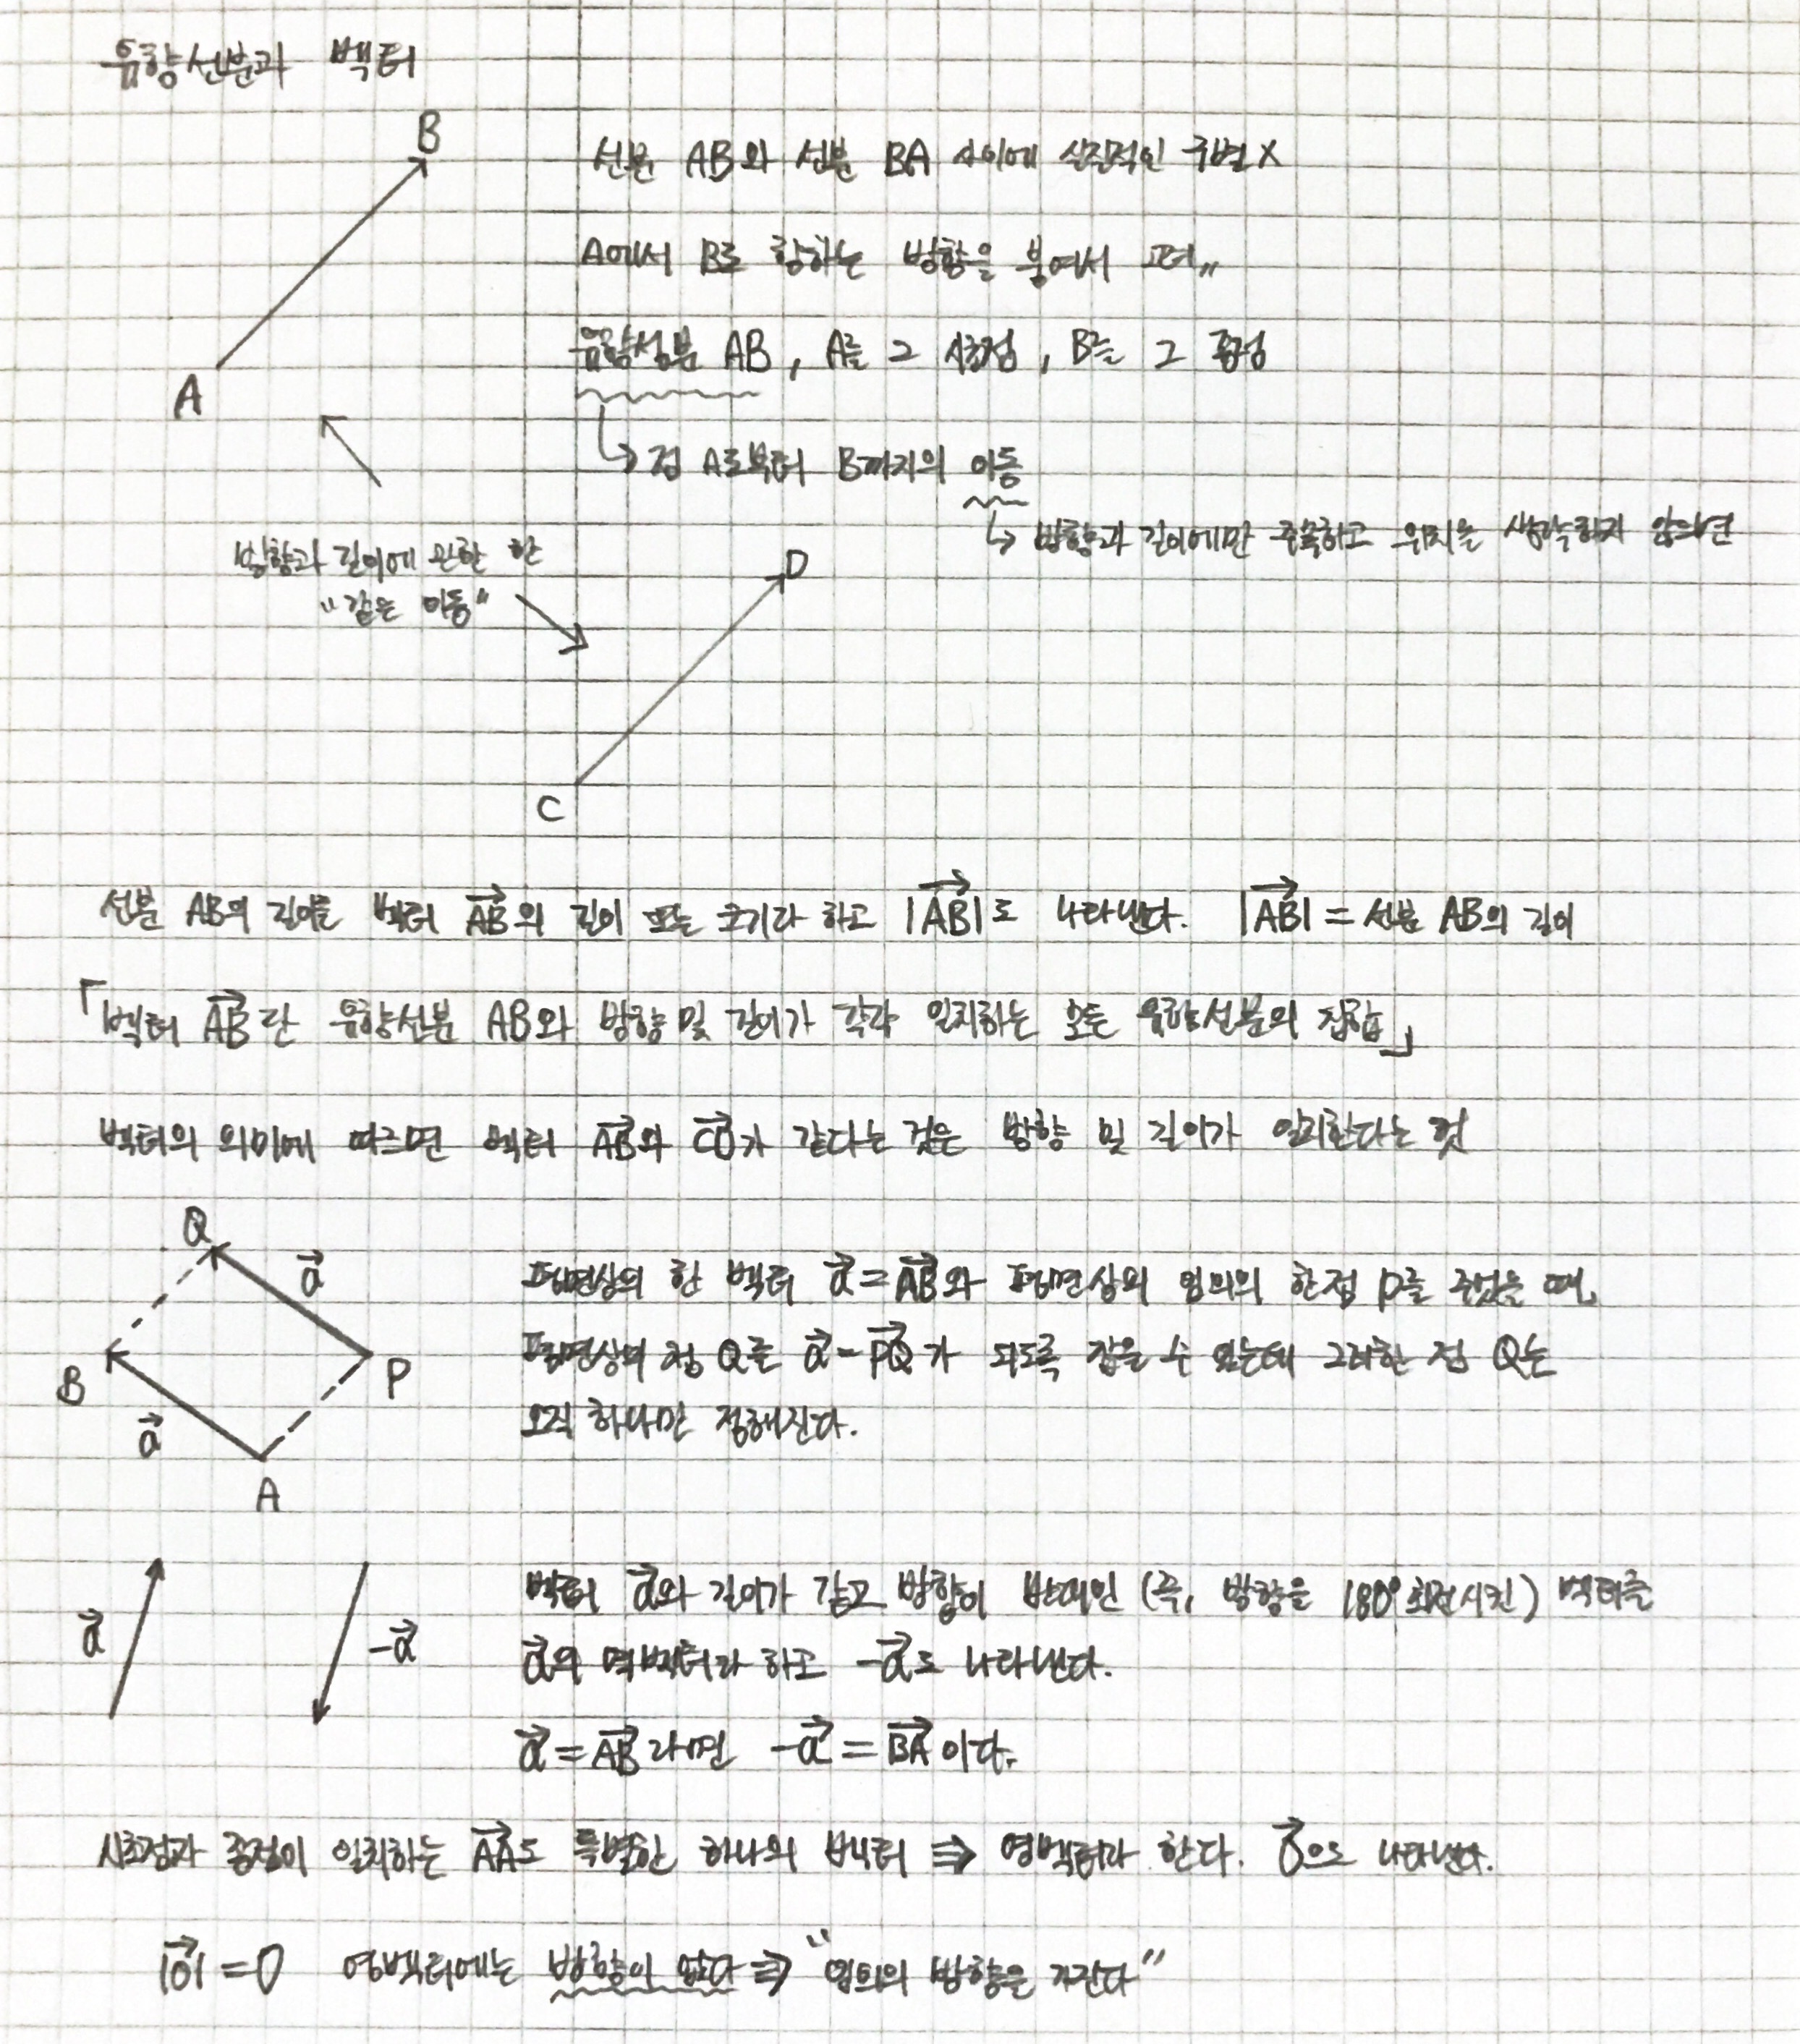 유향선분과 벡터
B
선분 AB와 선분 BA 사이에 실질적인 구별 X
A에서 B로 향하는 방향을 붙여서 고려,,
유향선분 AB, A를 그 시초점, B를 그 종점
A
↳ 점 A로부터 B까지의 이동
↳ 방향과 길이에만 주목하고 위치를 생각하지 않으면
방향과 길이에 관한 한
"같은 이동"
D
C
선분 AB의 길이를 벡터 \overrightarrow{AB}의 길이 또는 크기라 하고 |\overrightarrow{AB}|로 나타낸다. |\overrightarrow{AB}| = 선분 AB의 길이
「벡터 \overrightarrow{AB}란 유향선분 AB와 방향 및 길이가 각각 일치하는 모든 유향선분의 집합」
벡터의 의미에 따르면 벡터 \overrightarrow{AB}와 \overrightarrow{CD}가 같다는 것은 방향 및 길이가 일치한다는 것
Q
\vec{a}
B
P
\vec{a}
A
평면상의 한 벡터 \vec{a} = \overrightarrow{AB}와 평면상의 임의의 한점 P를 주었을 때,
평면상의 점 Q를 \vec{a} = \overrightarrow{PQ}가 되도록 잡을 수 있는데 그러한 점 Q는
오직 하나만 정해진다.
\vec{a}
-\vec{a}
벡터 \vec{a}와 길이가 같고 방향이 반대인 (즉, 방향을 180° 회전시킨) 벡터를
\vec{a}의 역벡터라 하고 -\vec{a}로 나타낸다.
\vec{a} = \overrightarrow{AB}라면 -\vec{a} = \overrightarrow{BA}이다.
시초점과 종점이 일치하는 \overrightarrow{AA}도 특별한 하나의 벡터 ⇒ 영벡터라 한다. \vec{0}으로 나타낸다.
|\vec{0}| = 0 영벡터에는 방향이 없다 ⇒ "임의의 방향을 가진다"